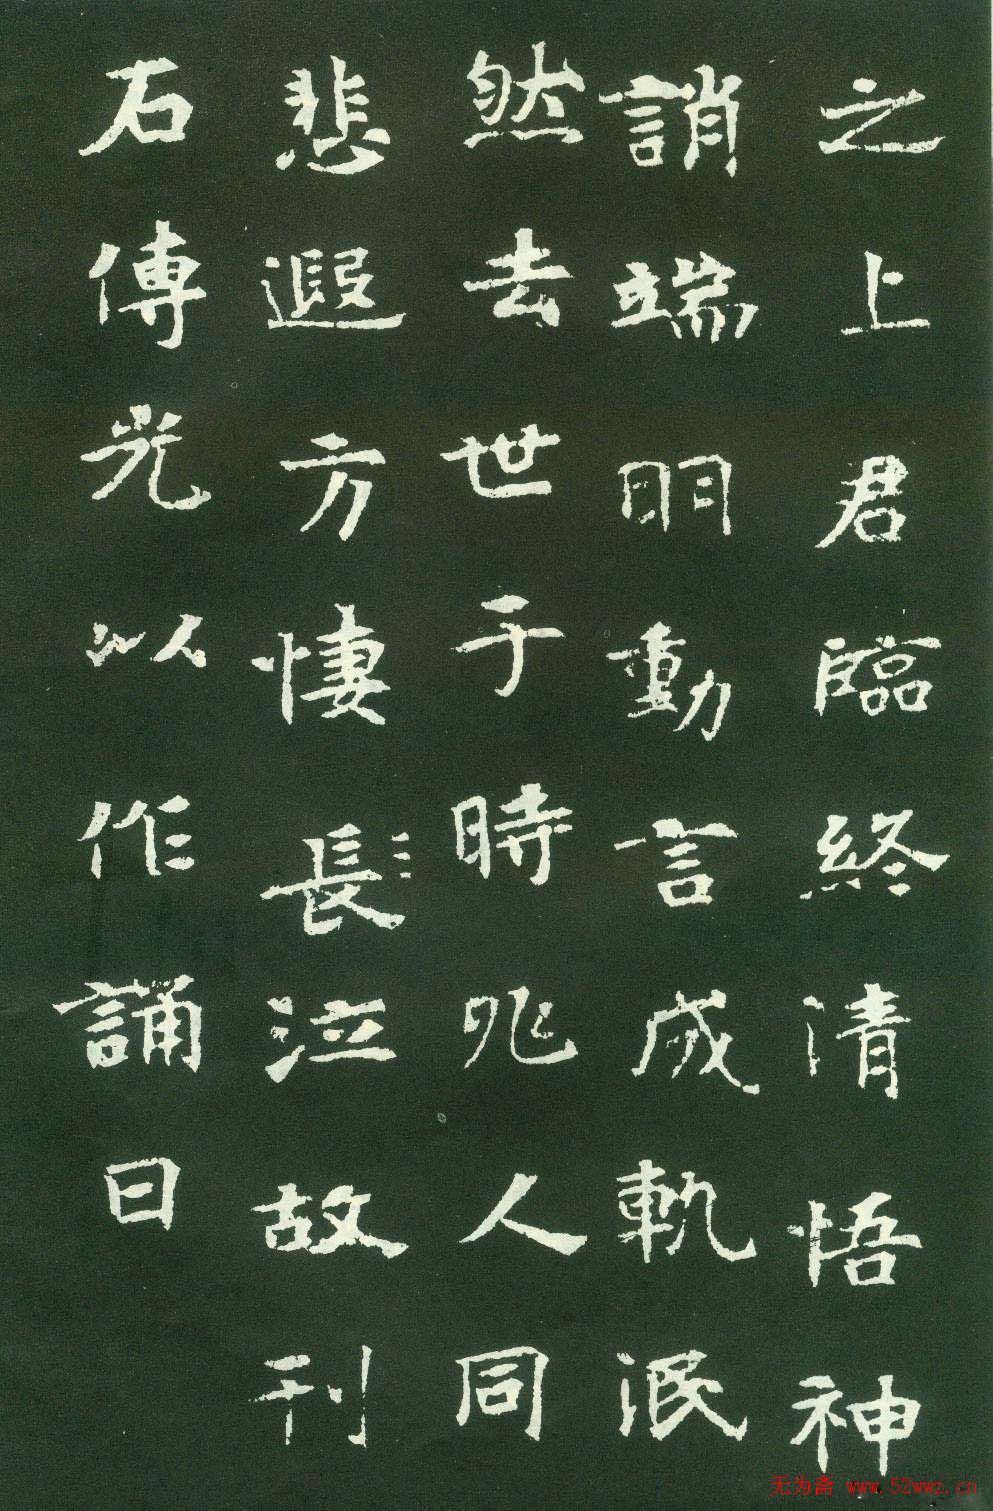 之上君臨終清悟神
誚端明動言成軌泯
然去世于時兆人同
悲遐方悽長泣故刊
石傳光以作誦曰
无为斋 www.52wwz.cn